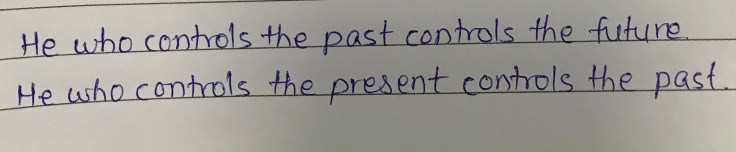 He who controls the past controls the future.
He who controls the present controls the past.